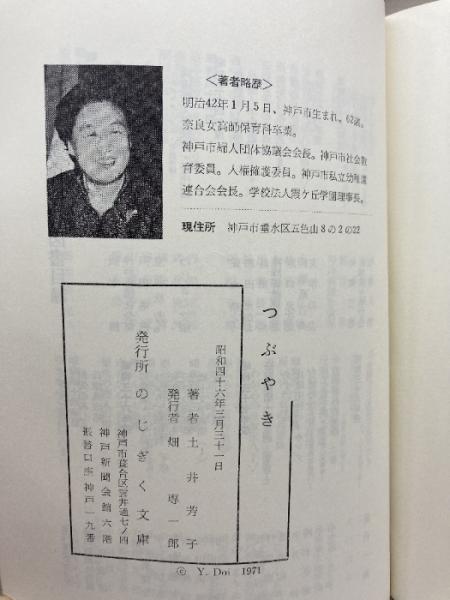 <著者略歴>
明治42年1月5日、神戸市生まれ。62歳。
奈良女高師保育科卒業。
神戸市婦人団体協議会会長。神戸市社会教
育委員。人権擁護委員。神戸市私立幼稚園
連合会会長。学校法人霞ケ丘学園理事長。
現住所 神戸市垂水区五色山8の2の22
つぶやき
昭和四十六年三月三十一日
著者 土井芳子
発行者 畑専一郎
発行所 のじぎく文庫
神戸市葺合区雲井通七ノ四
神戸新聞会館六階
振替口座神戸一九番
© Y. Doi 1971